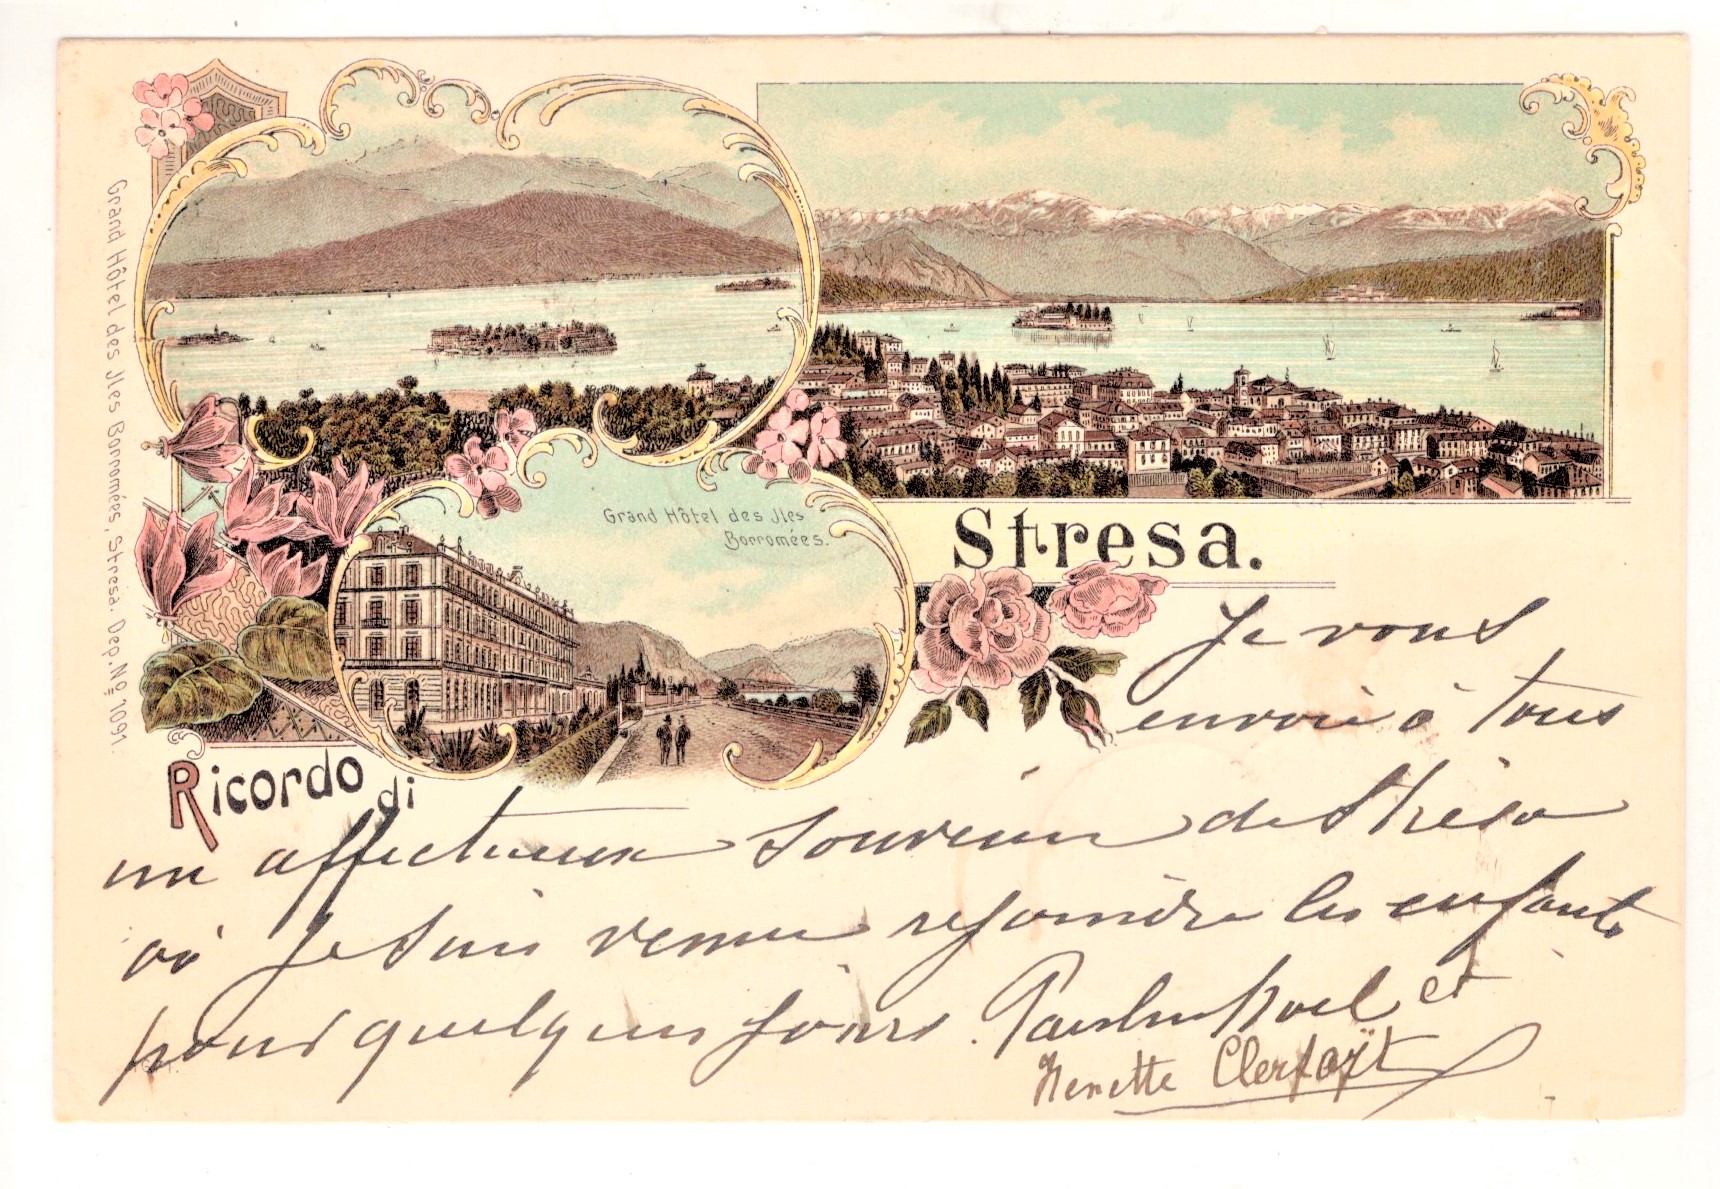 Grand Hôtel des Jles Borromées, Stresa. Dep. No 7091.
Grand Hôtel des Jles
Borromées.
Stresa.
Ricordo di
Je vous
envoie à tous
un affectueux souvenir de Strésa
où je suis venue rejoindre les enfants
pour quelques jours. et
Clerfaÿt